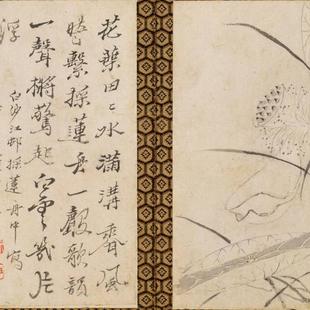 花葉田〻水滿溝香風
繫採蓮舟一聲歌韻
一聲驚起白雲幾片
浮
白沙江邨採蓮舟中寫